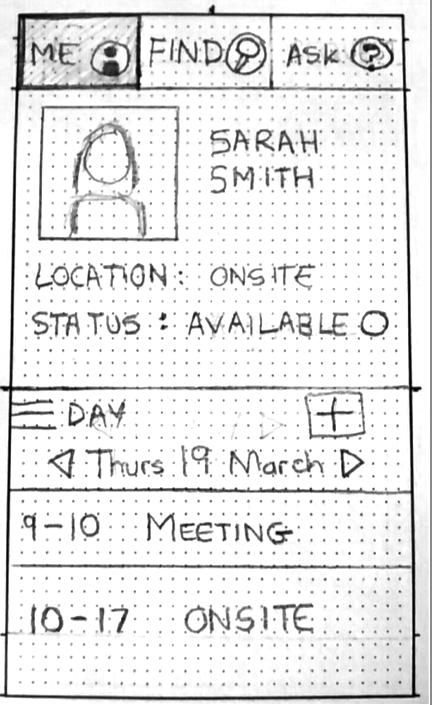 ME FIND ASK ?
SARAH
SMITH
LOCATION: ONSITE
STATUS: AVAILABLE
DAY +
Thurs 19 March
9-10 MEETING
10-17 ONSITE